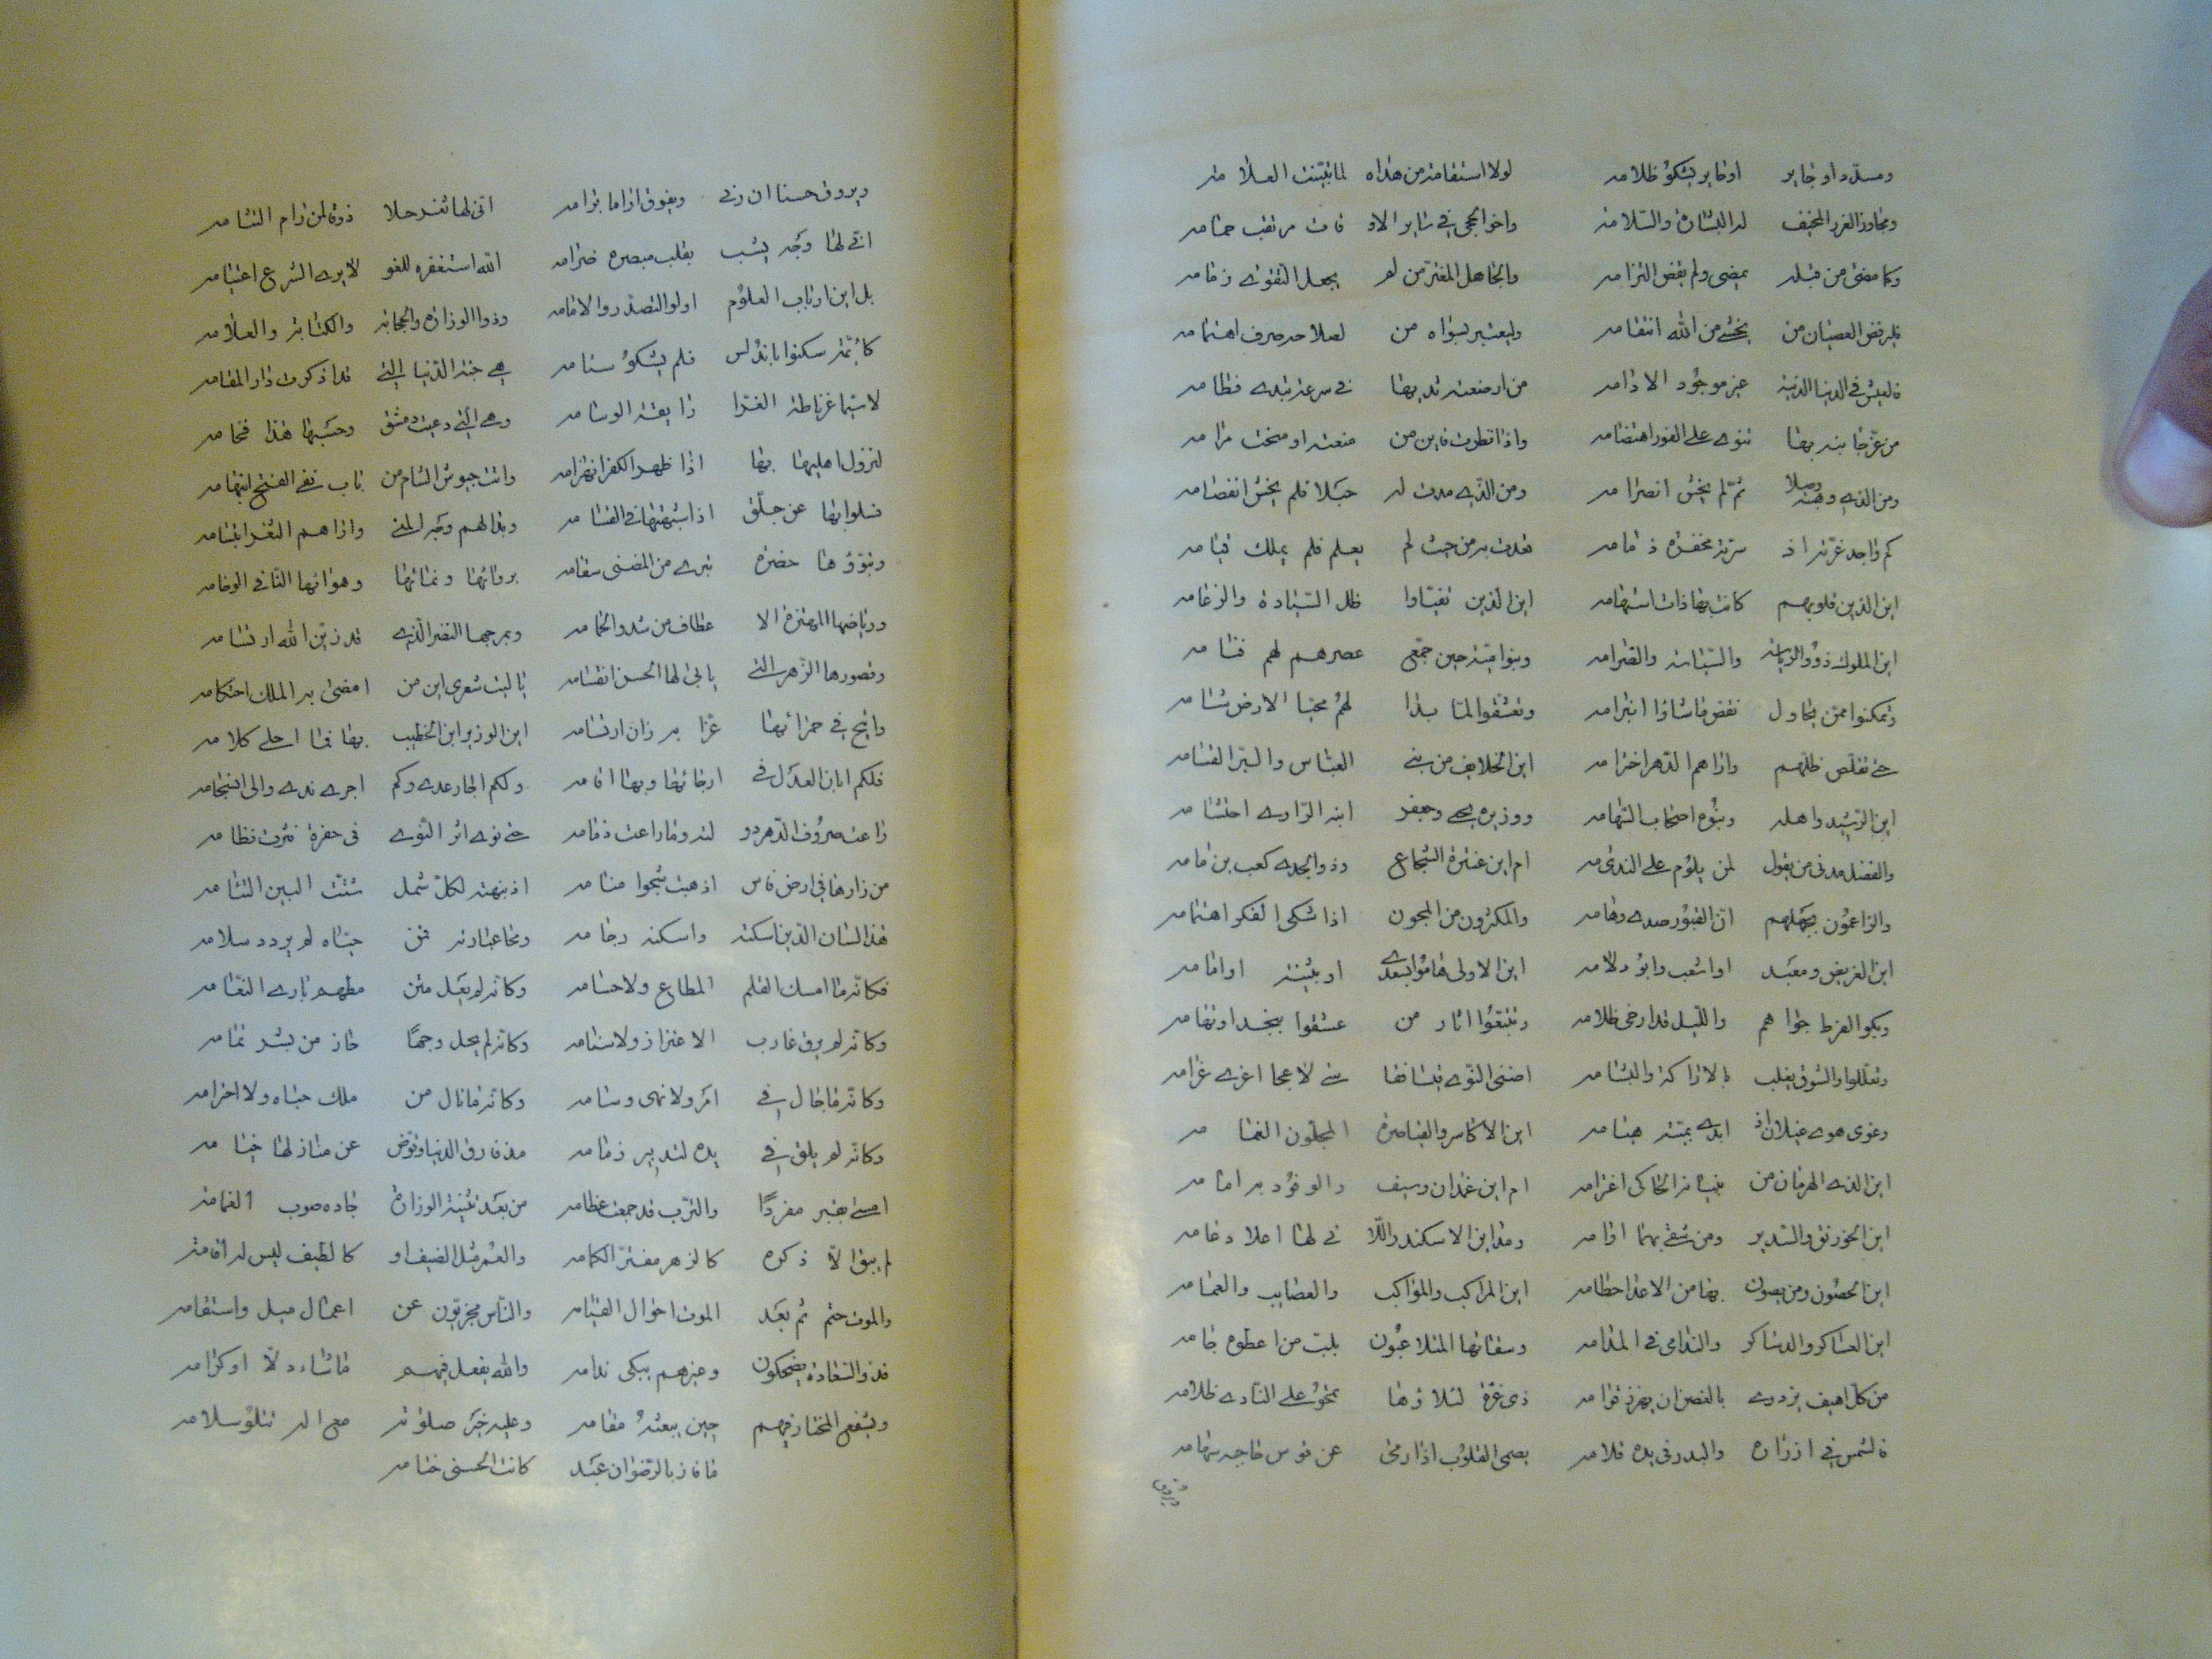 ومسدد او جاير اوحاير يشكو ظلامه لولا استقامة من هداه لما تبينت العلامه
ومجاور الغرر المخيف له البشارة والسلامه واخو الحجى في ساير الاوقات مرتقب حمامه
وكما مضى من قبله يمضي ولم يقض التزامه والجاهل المغتر من لم يجعل التقوى
فليرفض العصيان من يخشى من الله انتقامه وليعتبر بسواه من لصلاحه صرف اهتمامه
فالعيش في الدنيا الدنية غير موجود الادامه من ارضعته ثديها في سرعة تبدي فطامه
من عز جانبه بها تنوي على الفور اهتضامه واذا نظرت فاين من منعته او منحت مرامه
ومن الذي وهبته وصلا ثم لم يخش انصرامه ومن الذي مدت له حبلا فلم يخش انفصامه
كم واجد غرته اذ سرته مخفرة ذمامه قعدت به من حيث لم يعلم فلم يملك قيامه
اين الذين قلوبهم كانت بها ذات استهامه اين الذين تفيئوا ظل السيادة والزعامه
اين الملوك ذوو الرياسة والسياسة والصرامه وبنو امية حين جمع عصرهم لهم فئامه
وتمكنوا ممن يحاول نقض ما شاؤا انبرامه وتعشقوا لما بدا لهم محيا الارض شامه
حتى تقلص ظلهم واراهم الدهر اخترامه اين الخلايف من بني العباس والبر القسامه
اين الرشيد واهله وبنوه اصحاب الشهامه ووزيره يحيى وجعفر ابنه الراوي احتشامه
والفضل مدني من يقول لمن يلوم على الندى مه ام اين عنترة الشجاع وذو الجدى كعب بن مامه
والزاعمون بجهلهم ان القبور صدى وهامه والمكثرون من المجون اذا شكى الفكر اهتمامه
اين الغريض ومعبد او اشعب وابو دلامه اين الاولى هاموا بسعدى او بثينة او امامه
وبكوا لفرط جواهم والليل قد ارخى ظلامه وتتبعوا اثار من عشقوا بنجد او تهامه
وتعللوا والشوق يغلب بالاراكة والبشامه اضنى النوى
وغوى هوى غيلان اذ ابدى بمية هيامه اين الاكاسر والقياصرة المجلون الغمامه
اين الذي الهرمان من بنيانه الحاكي اغترامه ام اين غمدان وسيف والوفود به امامه
اين الخورنق والسدير ومن شفى بهما اوامه ومدائن الاسكندر اللاتي لها اعلا دعامه
اين الحصون ومن يصون بها من الاعدا حطامه اين المراكب والمواكب والعصايب والعمامه
اين العساكر والدساكر والندامى في المدامه وسقاتها المتلاعبون بلب من اعطوه جامه
من كل اهيف يزدري بالغصن ان يهزز قوامه ذي غرة لئلاؤها يمحو على النادي ظلامه
فالشمس في ازراره والبدر في يده قلامه يصمي القلوب اذا رمى عن قوس حاجبه سهامه
ويروق حسنا ان رنى ويفوق اراما برامه انى لها ثغر حلا ذوقا لمن رام التثامه
انى لها وجه يشب بقلب مبصره ضرامه الله استغفره للغو لا يرى الشرع اعتيامه
بل اين ارباب العلوم اولو التصدر والامامه وذوا الوزارة والحجابة والكتابة والعلامه
كائمة سكنوا باندلس فلم يشكو سئامه هي جنة الدنيا التي قد اذكرت دار المقامه
لا سيما غرناطة الغرا رايقة الوسامه وهي التي دعيت دمشق وحسبها هذا فخامه
لنزول اهليها بها اذا ظهر الكفر انهزامه واتت جيوش الشام من باب نفى الفتح انبهامه
فسلوا بها عن جلق اذ اشبهتها في القسامه وبدا لهم وجه المنى واراهم الثغر ابتسامه
وتبوؤها حضرة تبرى من المضنى سقامه بروائها ومائها وهوائها النافي الوخامه
ورياضها المهتزة الاعطاف من شدو الحمامه وبمرجها النضر الذي قد زين الله ارتسامه
وقصورها الزهر التي يابى لها الحسن انقسامه يا ليت شعري اين من امضى به الملك احتكامه
وابيح في حمرائها عزا به زان ارتسامه اين الوزير ابن الخطيب بها فما احلى كلامه
فلكم ابان العدل في ارجائها وبها اقامه ولكم اجار عدى وكم اجرى ندى والى انسجامه
راعت صروف الدهر دولته وما راعت ذمامه حتى ثوى اثر التوى في حفرة نثرت نظامه
من زارها في ارض فاس اذهبت شجوا منامه اذ نبهته لكل شمل شتت البين التئامه
هذا لسان الدين اسكته واسكنه رجامه ومحا عبارته فمن حياه لم يردد سلامه
فكانه ما امسك القلم المطاع ولا حسامه وكانه لم يعل متن مطهم بارى النعامه
وكانه لم يرق غارب الاعتزاز ولا سنامه وكانه لم يجل وجها حاز من بشر تمامه
وكانه ما جال في امر ولا نهي وسامه وكانه ما نال من ملك حباه ولا احترامه
وكانه لم يلق في يده لتدبير زمامه مذ فارق الدنيا وقوض عن منازلها خيامه
امسى بقبر مفردا والترب قد جمعت عظامه من بعد تثنية الوزارة جاده صوب الغمامه
لم يبق الا ذكره كالزهر مفتر الكمامه والعمر مثل الضيف او كالطيف ليس له اقامه
والموت حتم ثم بعد الموت احوال القيامه والناس مجزيون عن اعمال ميل واستقامه
فذو السعادة يضحكون وغيرهم يبكي ندامه والله يفعل فيهم ما شاء ذلا او كرامه
ويشفع المختار فيهم حين يبعثه مقامه وعليه خير صلوته مع اله تتلو سلامه
ما فاز بالرضوان عبد كانت الحسنى ختامه